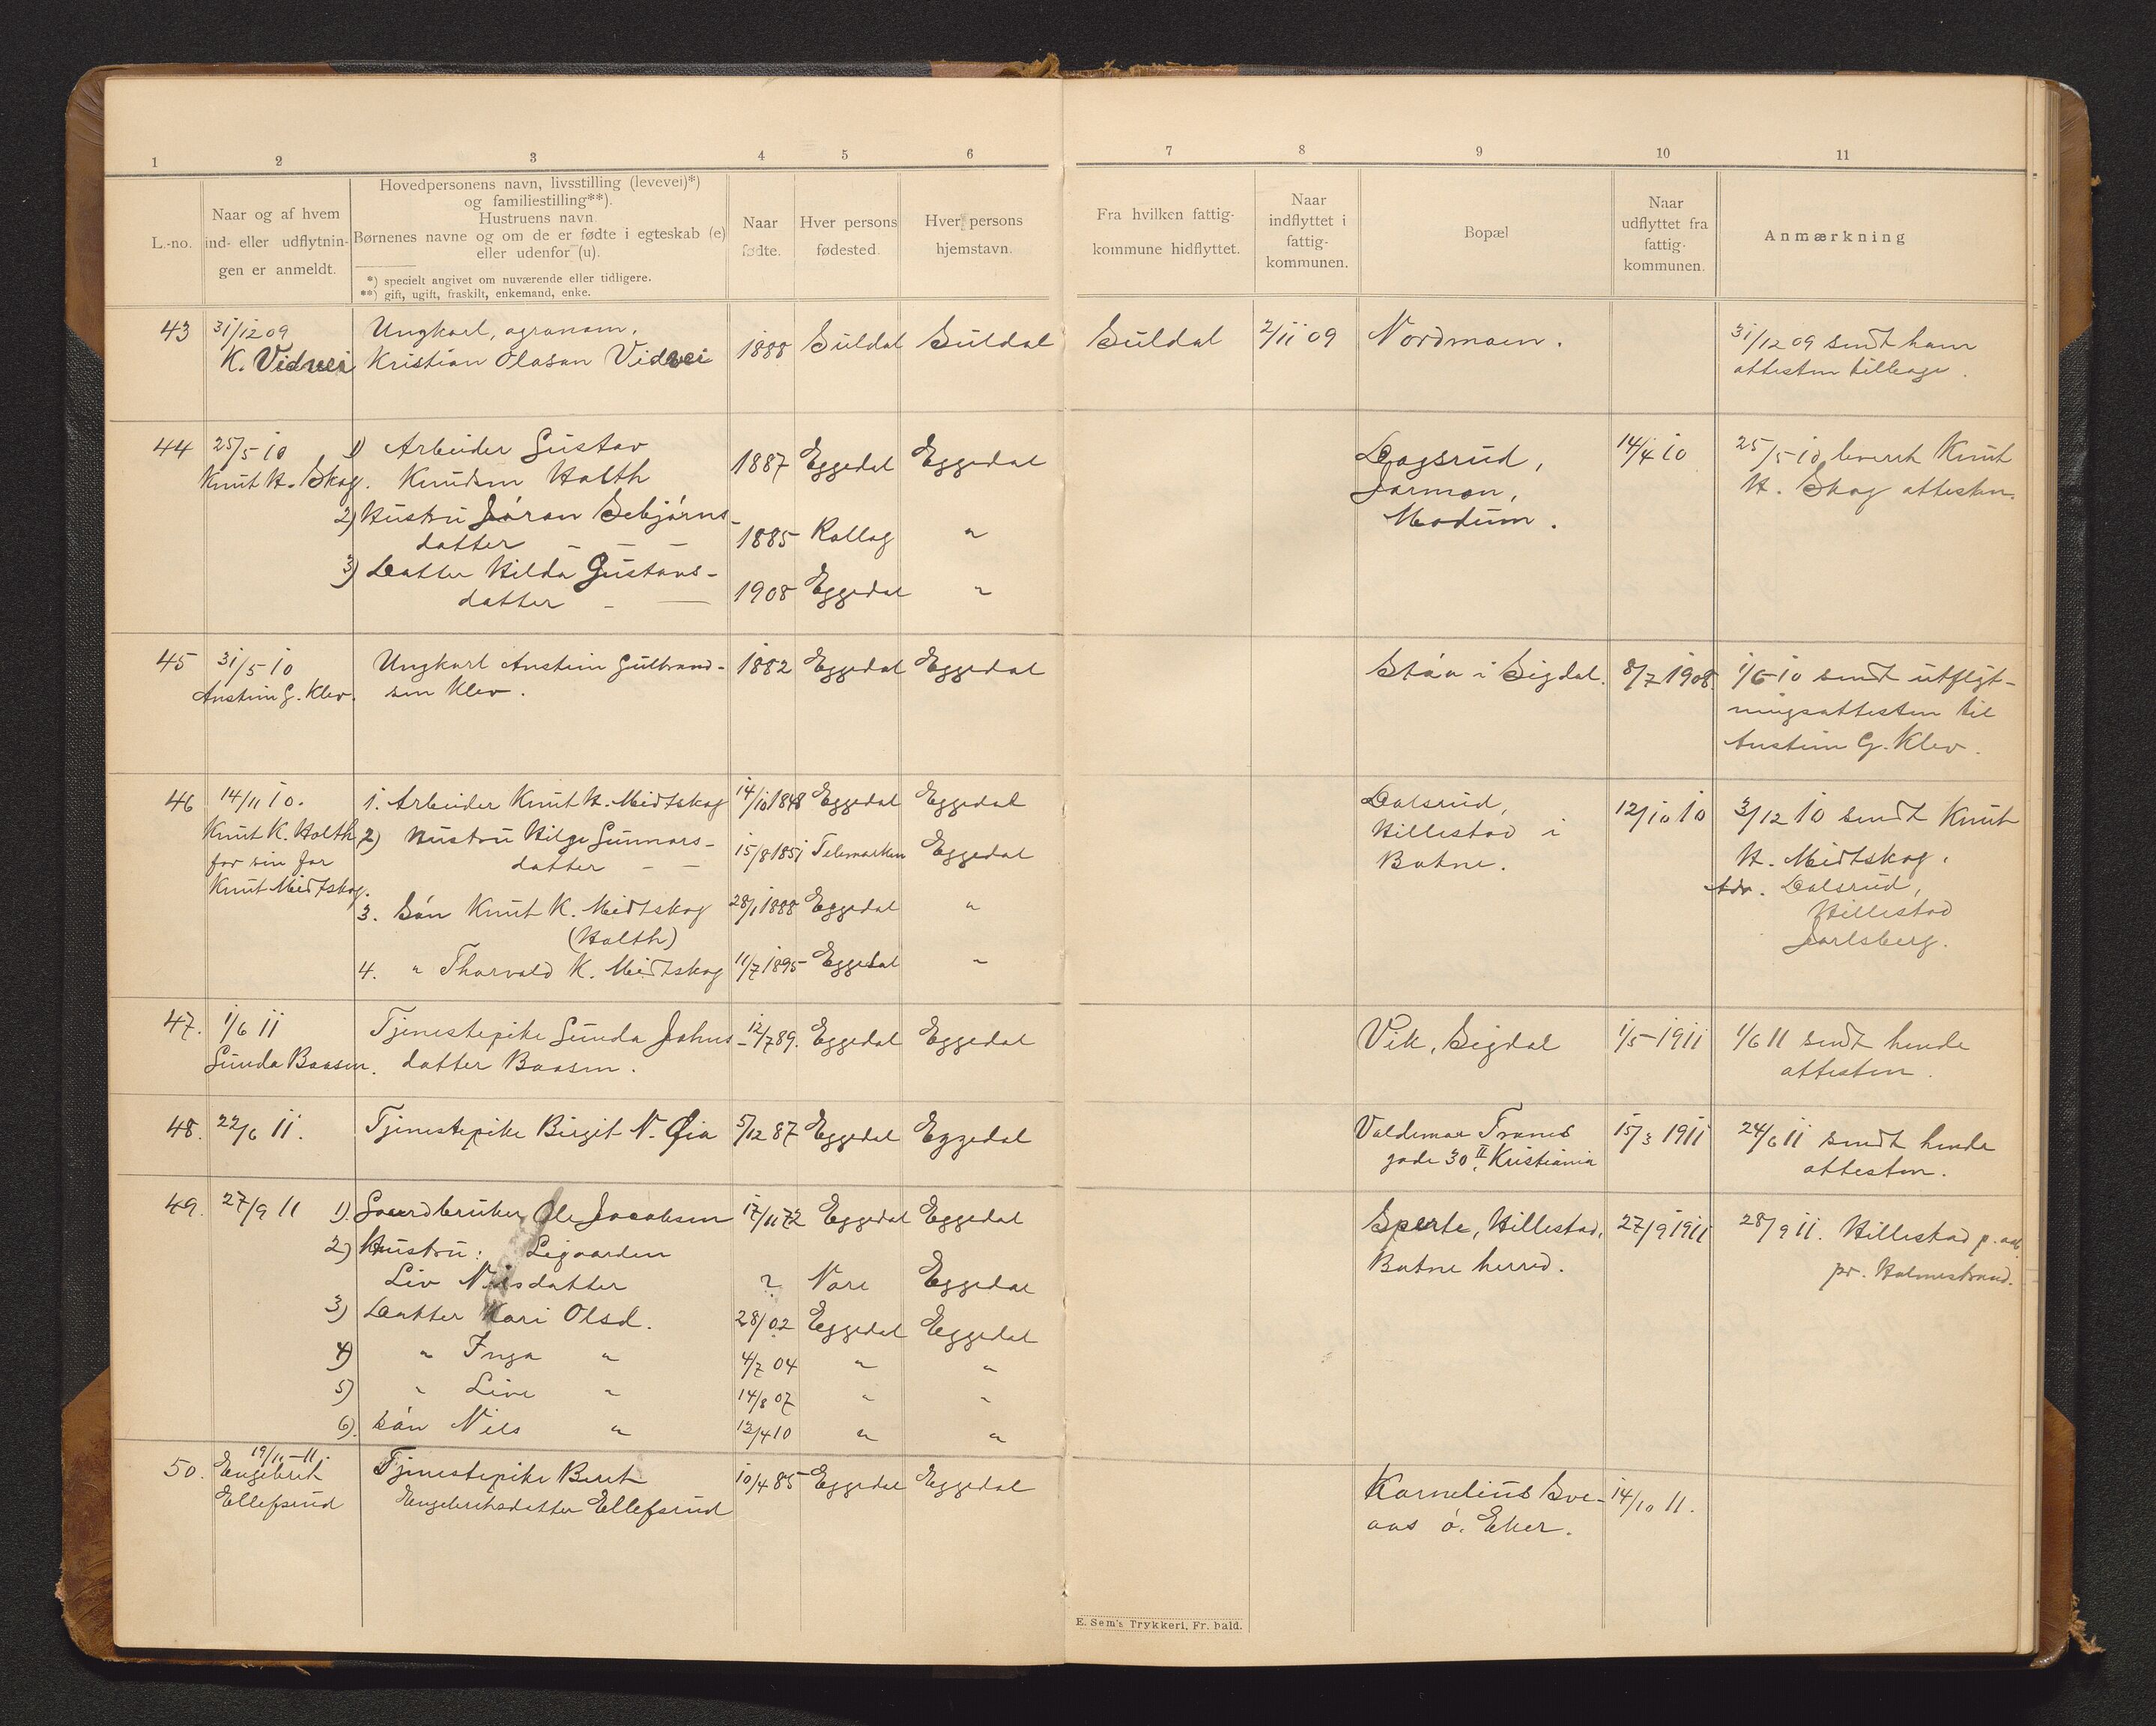 1 2 3 4 5 6 7 8 9 10 11
L.-no.
Naar og af hvem
ind- eller udflytnin-
gen er anmeldt.
Hovedpersonens navn, livsstilling (levevei)*)
og familiestilling**).
Hustruens navn.
Børnenes navne og om de er fødte i egteskab (e)
eller udenfor (u).
*) specielt angivet om nuværende eller tidligere.
**) gift, ugift, fraskilt, enkemand, enke.
Naar
fødte.
Hver persons
fødested.
Hver persons
hjemstavn.
Fra hvilken fattig-
kommune hidflyttet.
Naar
indflyttet i
fattig-
kommunen.
Bopæl
Naar
udflyttet fra
fattig-
kommunen.
Anmærkning
43
31/12 09
K. Vidvei
Ungkarl, agronom,
Kristian Olason Vidvei
1888 Suldal Suldal
Suldal 2/11 09 Nordmoen.
31/12 09 sendt ham
attesten tilbage.
44
25/5 - 10
Knut H. Skog.
1) Arbeider Gustav
Knudsen Holth
1887 Eggedal Eggedal
2) Hustru Jöran Sebjörns-
datter - - -
1885 Rollag "
3) Datter Hilda Gustavs-
datter - -
1908 Eggedal "
Dagsrud,
Jarmon,
Modum.
14/4 10
25/5 - 10 leveret Knut
H. Skog attesten.
45
31/5 - 10
Anstein G. Klev.
Ungkarl Anstein Gulbrand-
sen Klev.
1882 Eggedal Eggedal
Stöa i Sigdal. 8/7 1908.
1/6 - 10 sendt utflyt-
ningsattesten til
Anstein G. Klev.
46
14/11 10.
Knut K. Holth
for sin far
Knut Midtskog.
1. Arbeider Knut H. Midtskog 14/10 1848 Eggedal Eggedal
2) Hustru Hilge Gunnars-
datter - -
15/8 1851 Telemarken Eggedal
3. Sön Knut K. Midtskog 28/1 1888 Eggedal "
(Holth)
4. " Thorvald K. Midtskog 11/7 1895 Eggedal "
Dalsrud,
Hillestad i
Botne.
12/10 10
3/12 10 sendt Knut
H. Midtskog.
Adr. Dalsrud,
Hillestad
Jarlsberg.
47.
1/6 11
Gunda Baasen.
Tjenestepike Gunda Johns-
datter Baasen.
12/7 89. Eggedal Eggedal
Vik, Sigdal 1/5 - 1911
1/6 11 sendt hende
attesten.
48. 22/6 11. Tjenestepike Birgit N. Øia 5/12 87 Eggedal Eggedal
Valdemar Tranes
gade 30 II, Kristiania
15/3 1911
24/6 11 sendt hende
attesten.
49. 27/9 11
1). Gaardbruker Ole Jacobsen 17/11 72 Eggedal Eggedal
2) Hustru: Ligaarden
Liv Nilsdatter ? Nore Eggedal
3) Datter Kari Olsd. 28/ 02 Eggedal Eggedal
4) " Inga " 4/7 04 " "
5) " Live " 14/8 07 " "
6). Sön Nils " 12/4 10 " "
Sperte, Hillestad,
Botne herred.
27/9 1911
28/9 11. Hillestad p. aab.
pr. Holmestrand.
50.
19/11 - 11.
Engebret
Ellefsrud
Tjenestepike Berit
Engebretsdatter Ellefsrud
10/4 85 Eggedal Eggedal
Kornelius Sve-
aas ö. Eker.
14/10 11.
E. Sem's Trykkeri, Fr. hald.